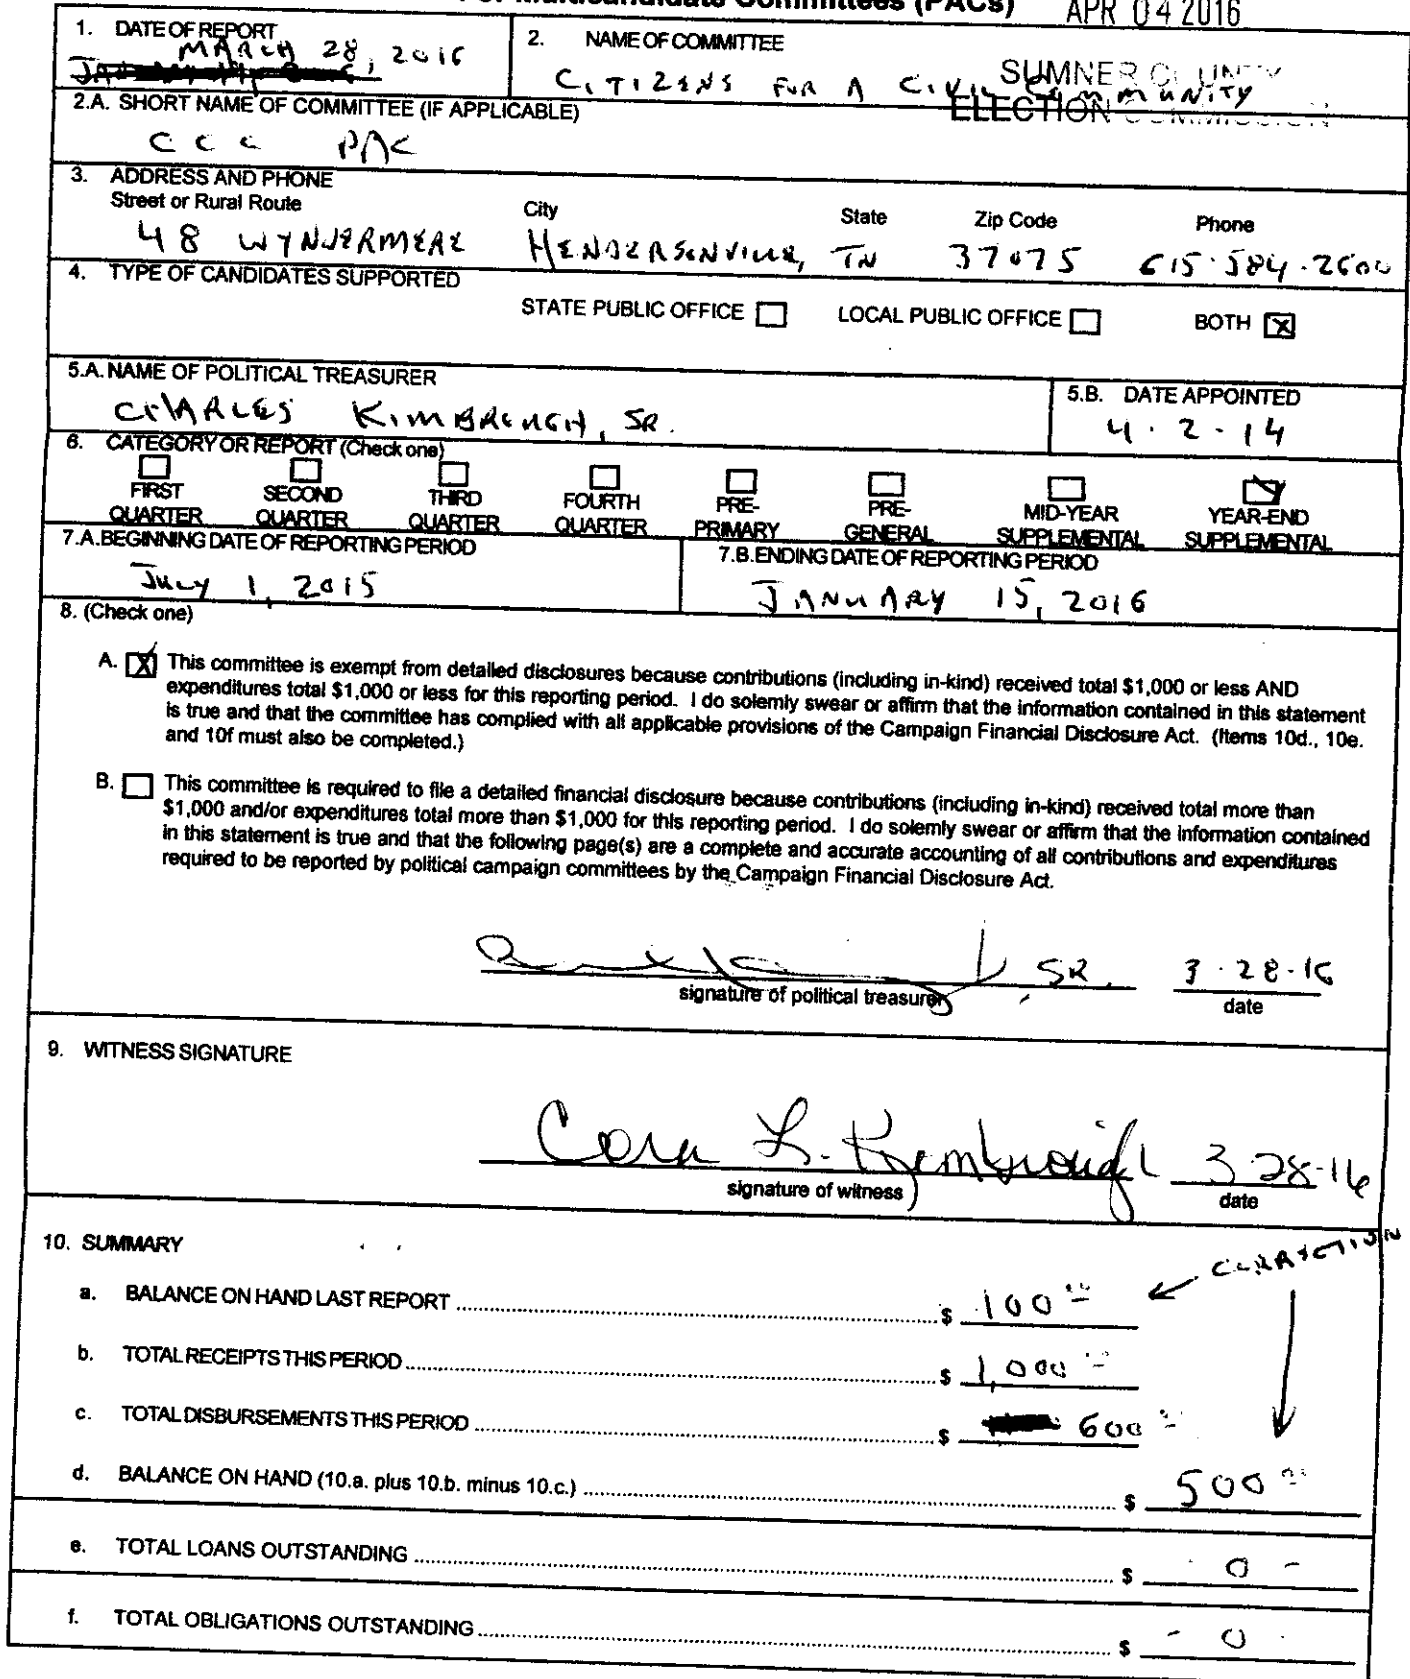 For Multicandidate Committees (PACs) APR 04 2016
1. DATE OF REPORT
MARCH 28, 2016
2. NAME OF COMMITTEE
CITIZENS FOR A CIVIL COMMUNITY
SUMNER COUNTY
ELECTION COMMISSION
2.A. SHORT NAME OF COMMITTEE (IF APPLICABLE)
CCC PAC
3. ADDRESS AND PHONE
Street or Rural Route City State Zip Code Phone
48 WYNDERMERE HENDERSONVILLE, TN 37075 615.584.2600
4. TYPE OF CANDIDATES SUPPORTED
STATE PUBLIC OFFICE LOCAL PUBLIC OFFICE BOTH X
5.A. NAME OF POLITICAL TREASURER
CHARLES KIMBROUGH, SR.
5.B. DATE APPOINTED
4.2.14
6. CATEGORY OR REPORT (Check one)
FIRST QUARTER SECOND QUARTER THIRD QUARTER FOURTH QUARTER PRE-PRIMARY PRE-GENERAL MID-YEAR SUPPLEMENTAL YEAR-END SUPPLEMENTAL
7.A. BEGINNING DATE OF REPORTING PERIOD
JULY 1, 2015
7.B. ENDING DATE OF REPORTING PERIOD
JANUARY 15, 2016
8. (Check one)
A. X This committee is exempt from detailed disclosures because contributions (including in-kind) received total $1,000 or less AND
expenditures total $1,000 or less for this reporting period. I do solemly swear or affirm that the information contained in this statement
is true and that the committee has complied with all applicable provisions of the Campaign Financial Disclosure Act. (Items 10d., 10e.
and 10f must also be completed.)
B. This committee is required to file a detailed financial disclosure because contributions (including in-kind) received total more than
$1,000 and/or expenditures total more than $1,000 for this reporting period. I do solemly swear or affirm that the information contained
in this statement is true and that the following page(s) are a complete and accurate accounting of all contributions and expenditures
required to be reported by political campaign committees by the Campaign Financial Disclosure Act.
SR. 3.28.16
signature of political treasurer date
9. WITNESS SIGNATURE
Cora L. Kimbrough 3-28-16
signature of witness date
10. SUMMARY
CORRECTION
a. BALANCE ON HAND LAST REPORT $ 100
b. TOTAL RECEIPTS THIS PERIOD $ 1,000
c. TOTAL DISBURSEMENTS THIS PERIOD $ 600
d. BALANCE ON HAND (10.a. plus 10.b. minus 10.c.) $ 500
e. TOTAL LOANS OUTSTANDING $ 0 -
f. TOTAL OBLIGATIONS OUTSTANDING $ - 0